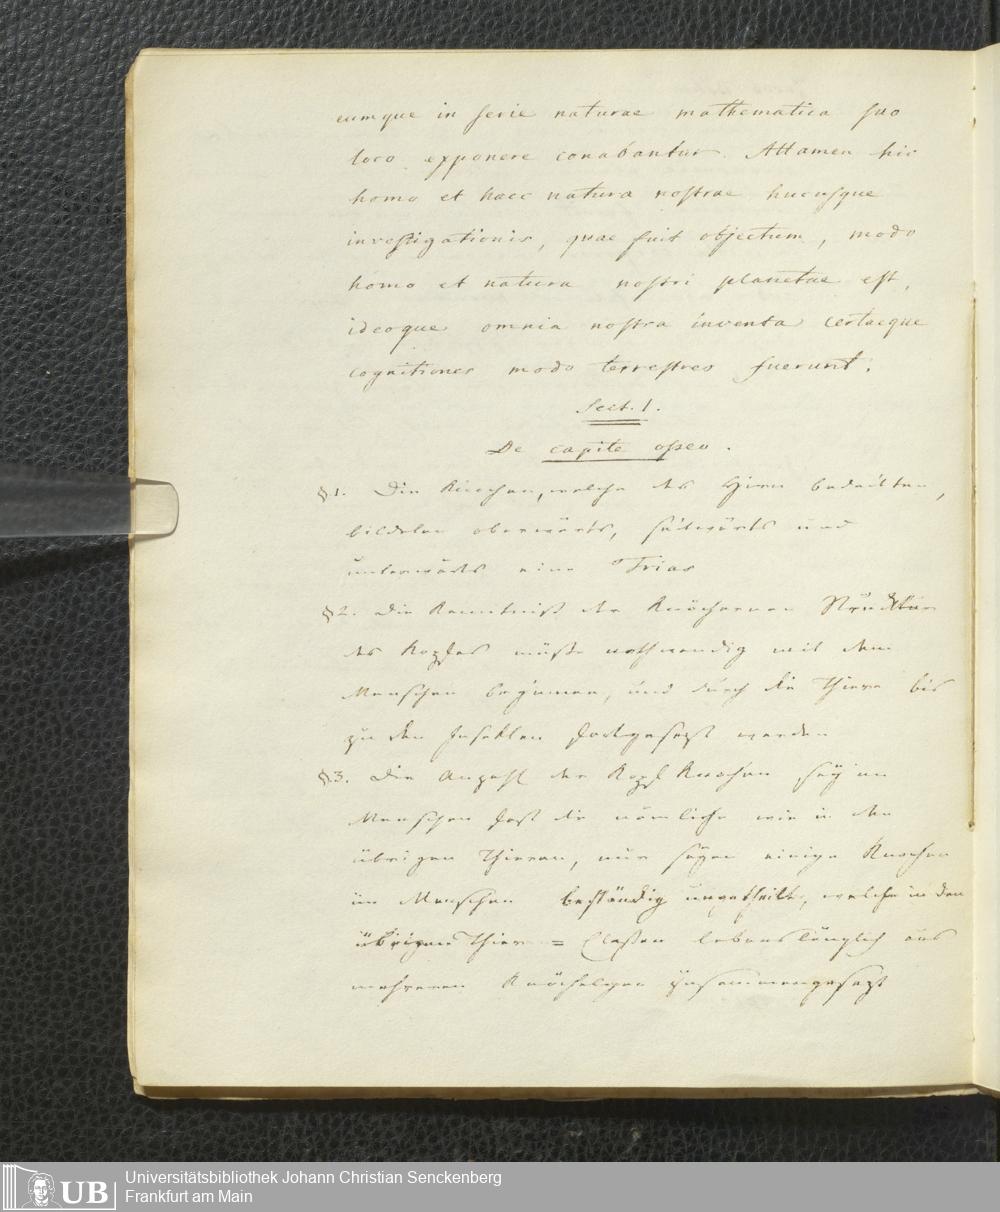 eumque in serie naturae mathematica suo
loco exponere conabantur. Attamen hic
homo et haec natura nostrae hucusque
investigationis, quae fuit objectum, modo
homo et natura nostri planetae est,
ideoque omnia nostra inventa certaeque
cognitiones modo terrestres fuerunt.
Sect. 1.
De capite osseo.
§1. Die Knochen, welche das Hirn bedeckten,
bildeten oberwärts, seitwärts und
unterwärts eine Trias
§2. Die Kenntniß der knöchernen Strucktur
des Kopfes müße nothwendig mit dem
Menschen beginnen, und durch die Thiere bis
zu den Insekten fortgesezt werden
§3. Die Anzahl der Kopf Knochen sey im
Menschen fast die nämliche wie in den
übrigen Thieren, nur seyen einige Knochen
im Menschen beständig ungetheilt, welche in den
übrigen Thier = Claßen lebenslänglich aus
mehreren Knöchelgen zusammengesezt
Universitätsbibliothek Johann Christian Senckenberg
Frankfurt am Main
UB